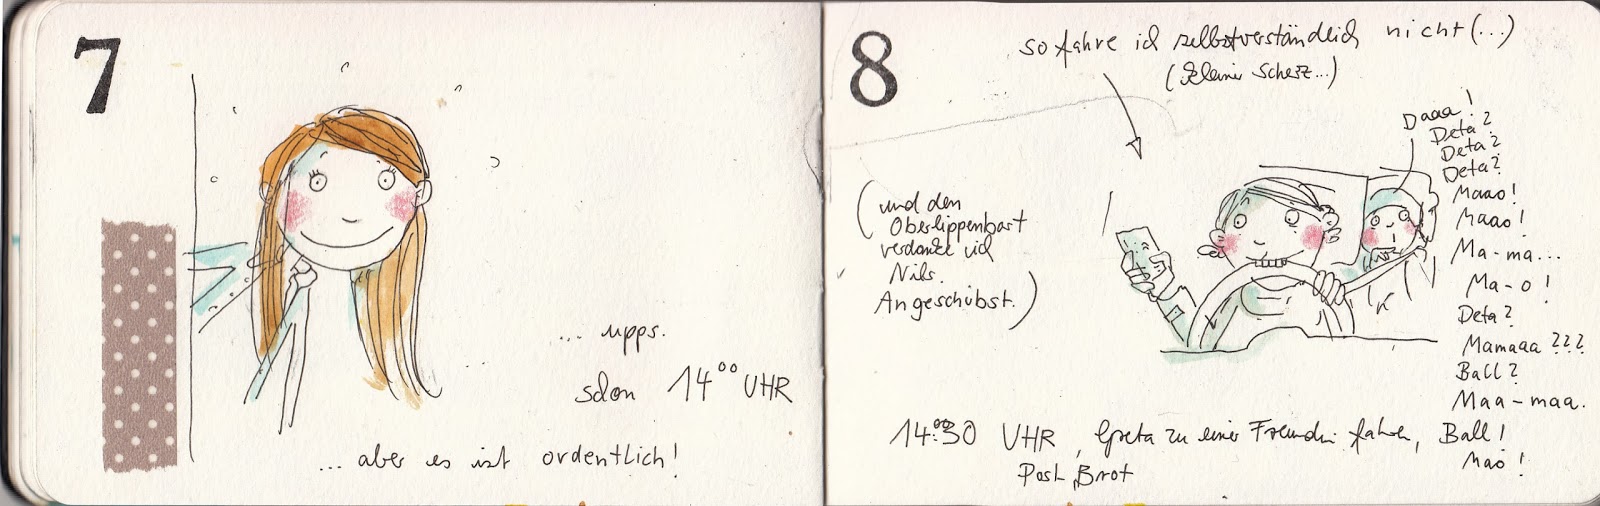 7
... upps.
schon 14⁰⁰ UHR
... aber es ist ordentlich!
8
so fahre ich selbstverständlich nicht (...)
(kleiner Scherz...)
(und den
Oberlippenbart
verdanke ich
Nils.
Angeschubst.)
Daaa!
Deta?
Deta?
Deta?
Maao!
Maao!
Ma-ma...
Ma-o!
Deta?
Mamaaa???
Ball?
Maa-maa.
Ball!
Mao!
14:30 UHR, Greta zu einer Freundin fahren,
Post, Brot